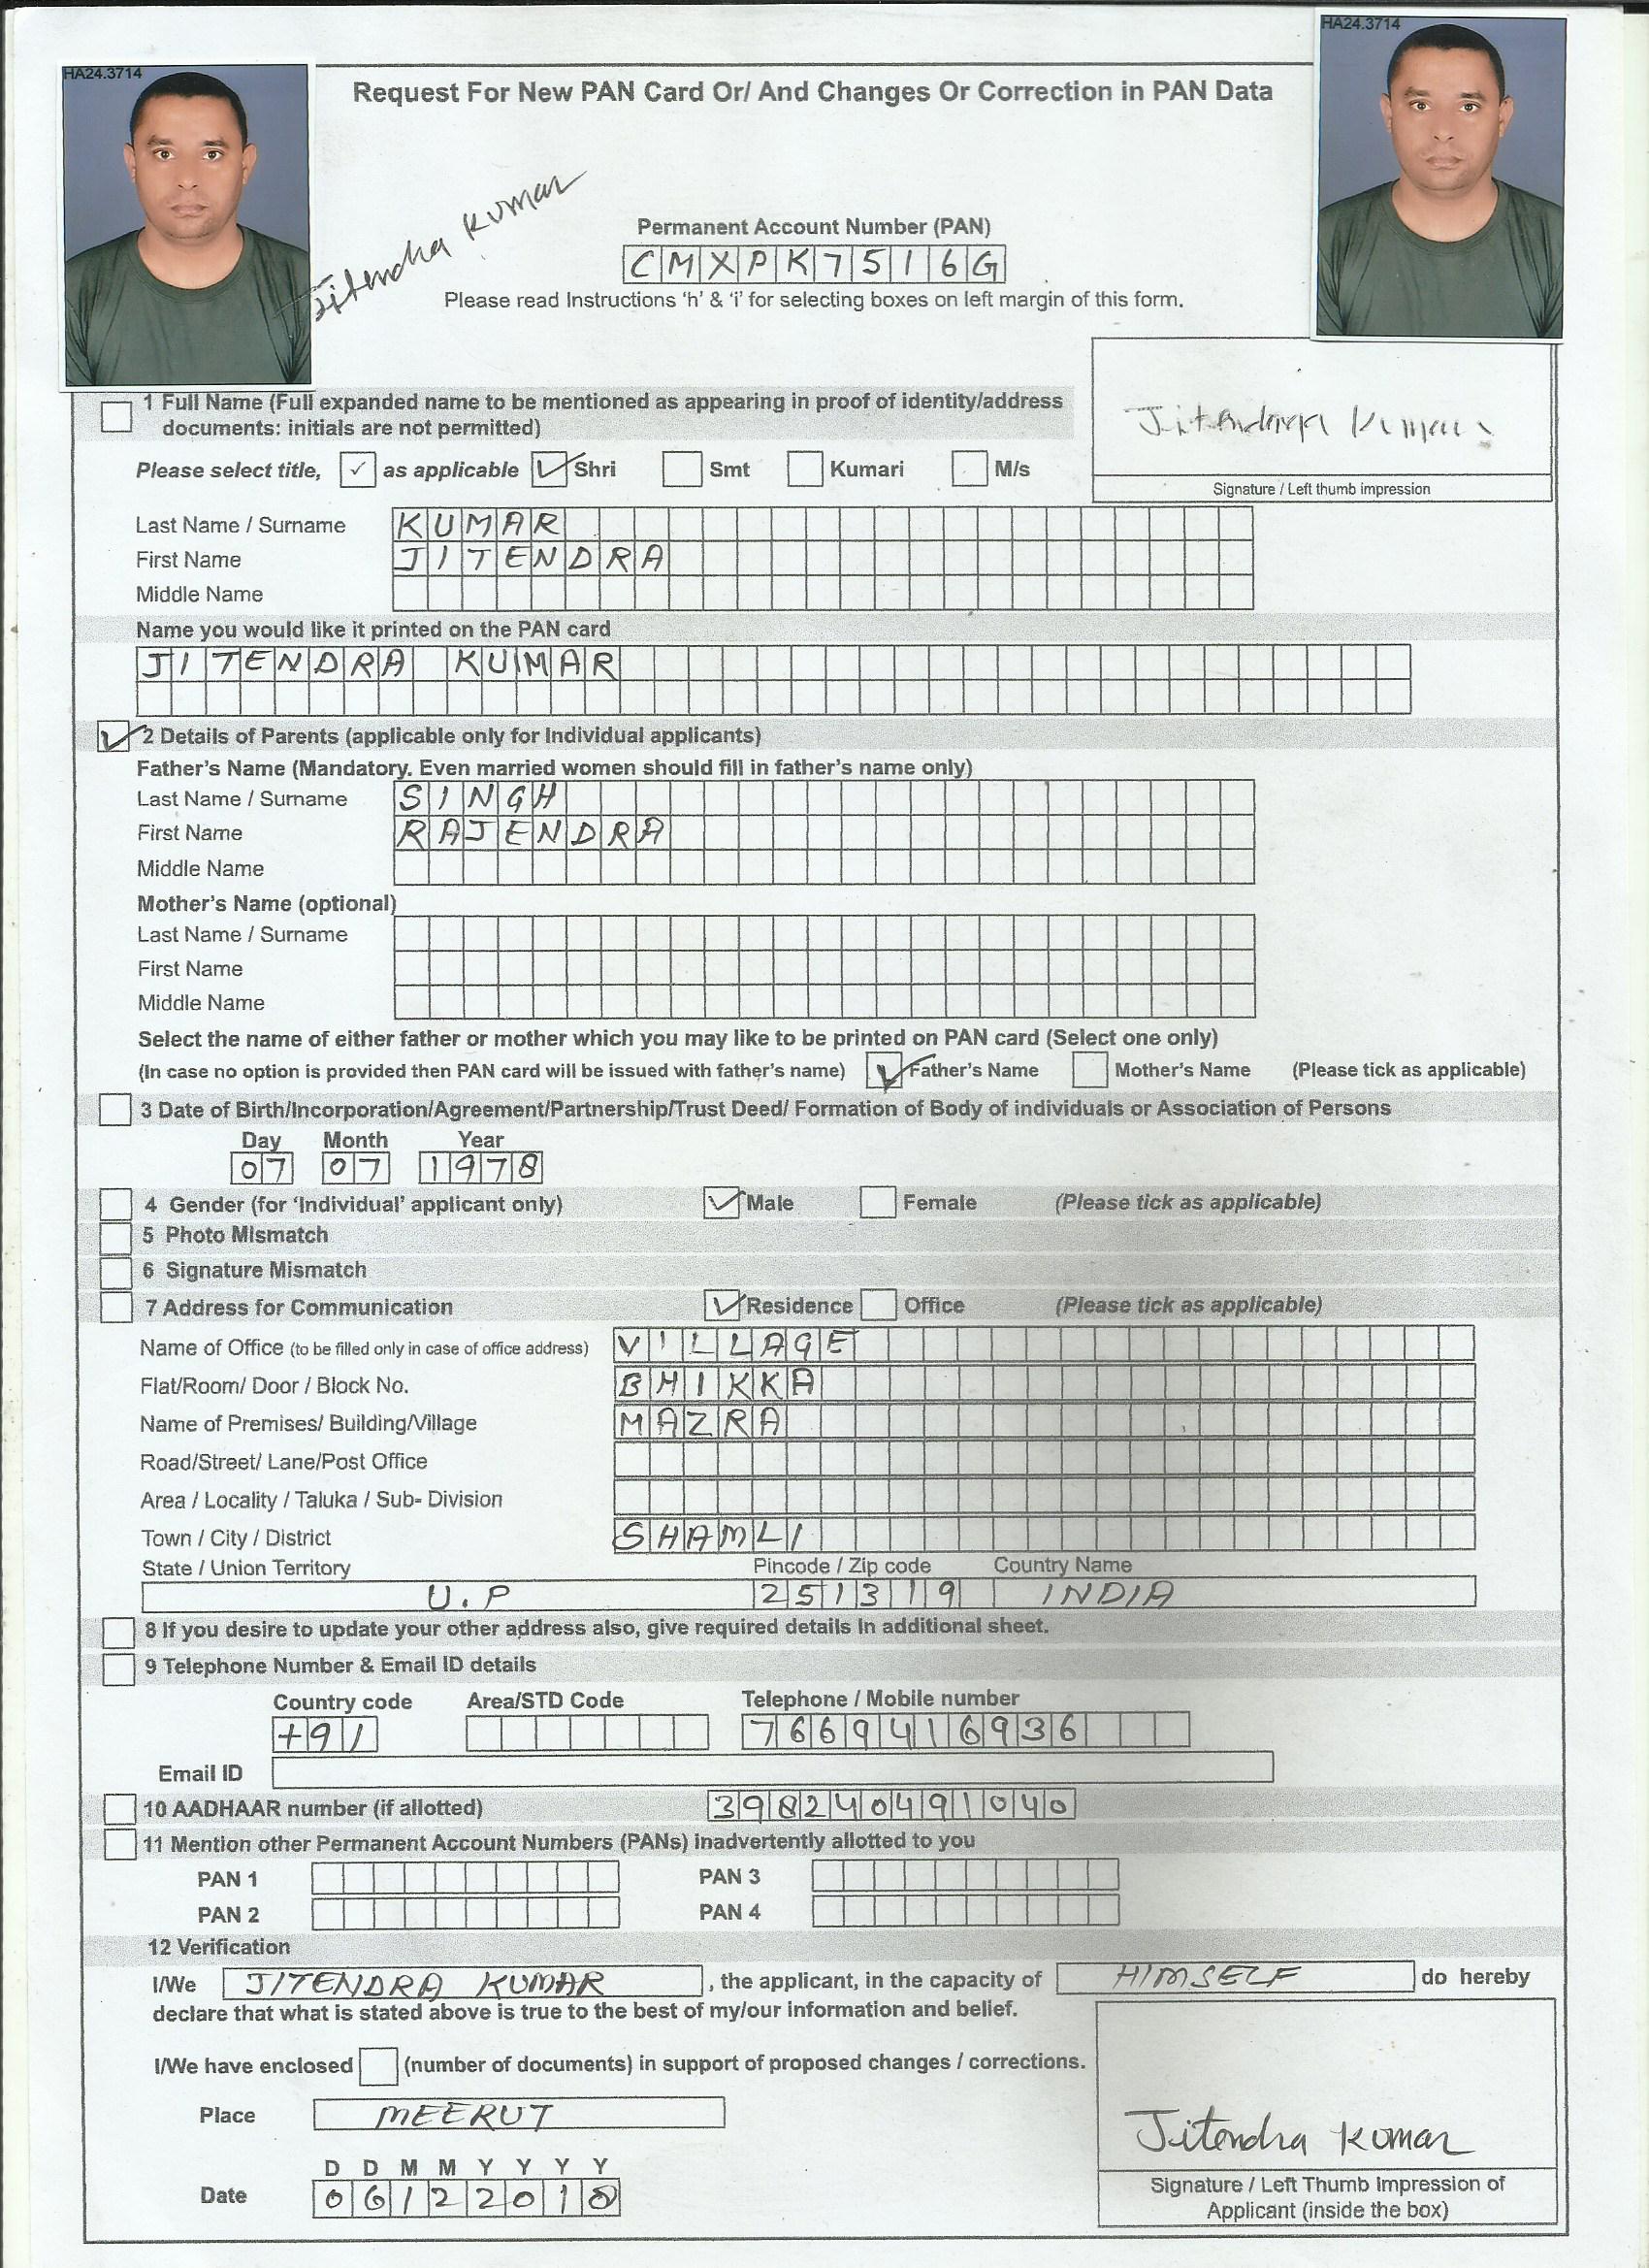 HA24.3714
HA24.3714
Request For New PAN Card Or/ And Changes Or Correction in PAN Data
Jitendra Kumar
Permanent Account Number (PAN)
CMXPK7516G
Please read Instructions 'h' & 'i' for selecting boxes on left margin of this form.
1 Full Name (Full expanded name to be mentioned as appearing in proof of identity/address
documents: initials are not permitted)
Jitendra Kumar
Signature / Left thumb impression
Please select title, ✓ as applicable ✓ Shri Smt Kumari M/s
Last Name / Surname KUMAR
First Name JITENDRA
Middle Name
Name you would like it printed on the PAN card
JITENDRA KUMAR
✓ 2 Details of Parents (applicable only for Individual applicants)
Father's Name (Mandatory. Even married women should fill in father's name only)
Last Name / Surname SINGH
First Name RAJENDRA
Middle Name
Mother's Name (optional)
Last Name / Surname
First Name
Middle Name
Select the name of either father or mother which you may like to be printed on PAN card (Select one only)
(In case no option is provided then PAN card will be issued with father's name) ✓ Father's Name Mother's Name (Please tick as applicable)
3 Date of Birth/Incorporation/Agreement/Partnership/Trust Deed/ Formation of Body of individuals or Association of Persons
Day Month Year
07 07 1978
4 Gender (for 'Individual' applicant only) ✓ Male Female (Please tick as applicable)
5 Photo Mismatch
6 Signature Mismatch
7 Address for Communication ✓ Residence Office (Please tick as applicable)
Name of Office (to be filled only in case of office address) VILLAGE
Flat/Room/ Door / Block No. BHIKKA
Name of Premises/ Building/Village MAZRA
Road/Street/ Lane/Post Office
Area / Locality / Taluka / Sub- Division
Town / City / District SHAMLI
State / Union Territory Pincode / Zip code Country Name
U.P 251319 INDIA
8 If you desire to update your other address also, give required details in additional sheet.
9 Telephone Number & Email ID details
Country code Area/STD Code Telephone / Mobile number
+91 7669416936
Email ID
10 AADHAAR number (if allotted) 398240491040
11 Mention other Permanent Account Numbers (PANs) inadvertently allotted to you
PAN 1 PAN 3
PAN 2 PAN 4
12 Verification
I/We JITENDRA KUMAR , the applicant, in the capacity of HIMSELF do hereby
declare that what is stated above is true to the best of my/our information and belief.
I/We have enclosed (number of documents) in support of proposed changes / corrections.
Place MEERUT
Jitendra Kumar
D D M M Y Y Y Y
Date 06122018
Signature / Left Thumb Impression of
Applicant (inside the box)